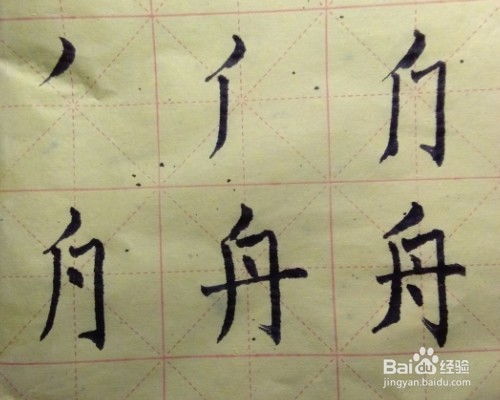 舟
Bai du 经验
jingyan.baidu.com